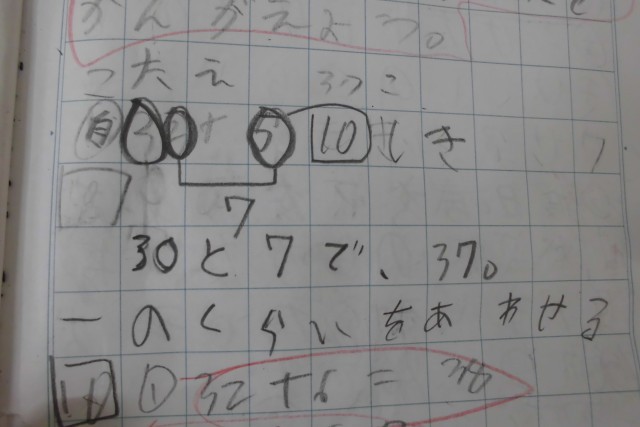 がんがえよう。
こたえ 37こ
自 32+5 10 しき
7
30と7で、37。
一のくらいをあわせる
① 32+6=38